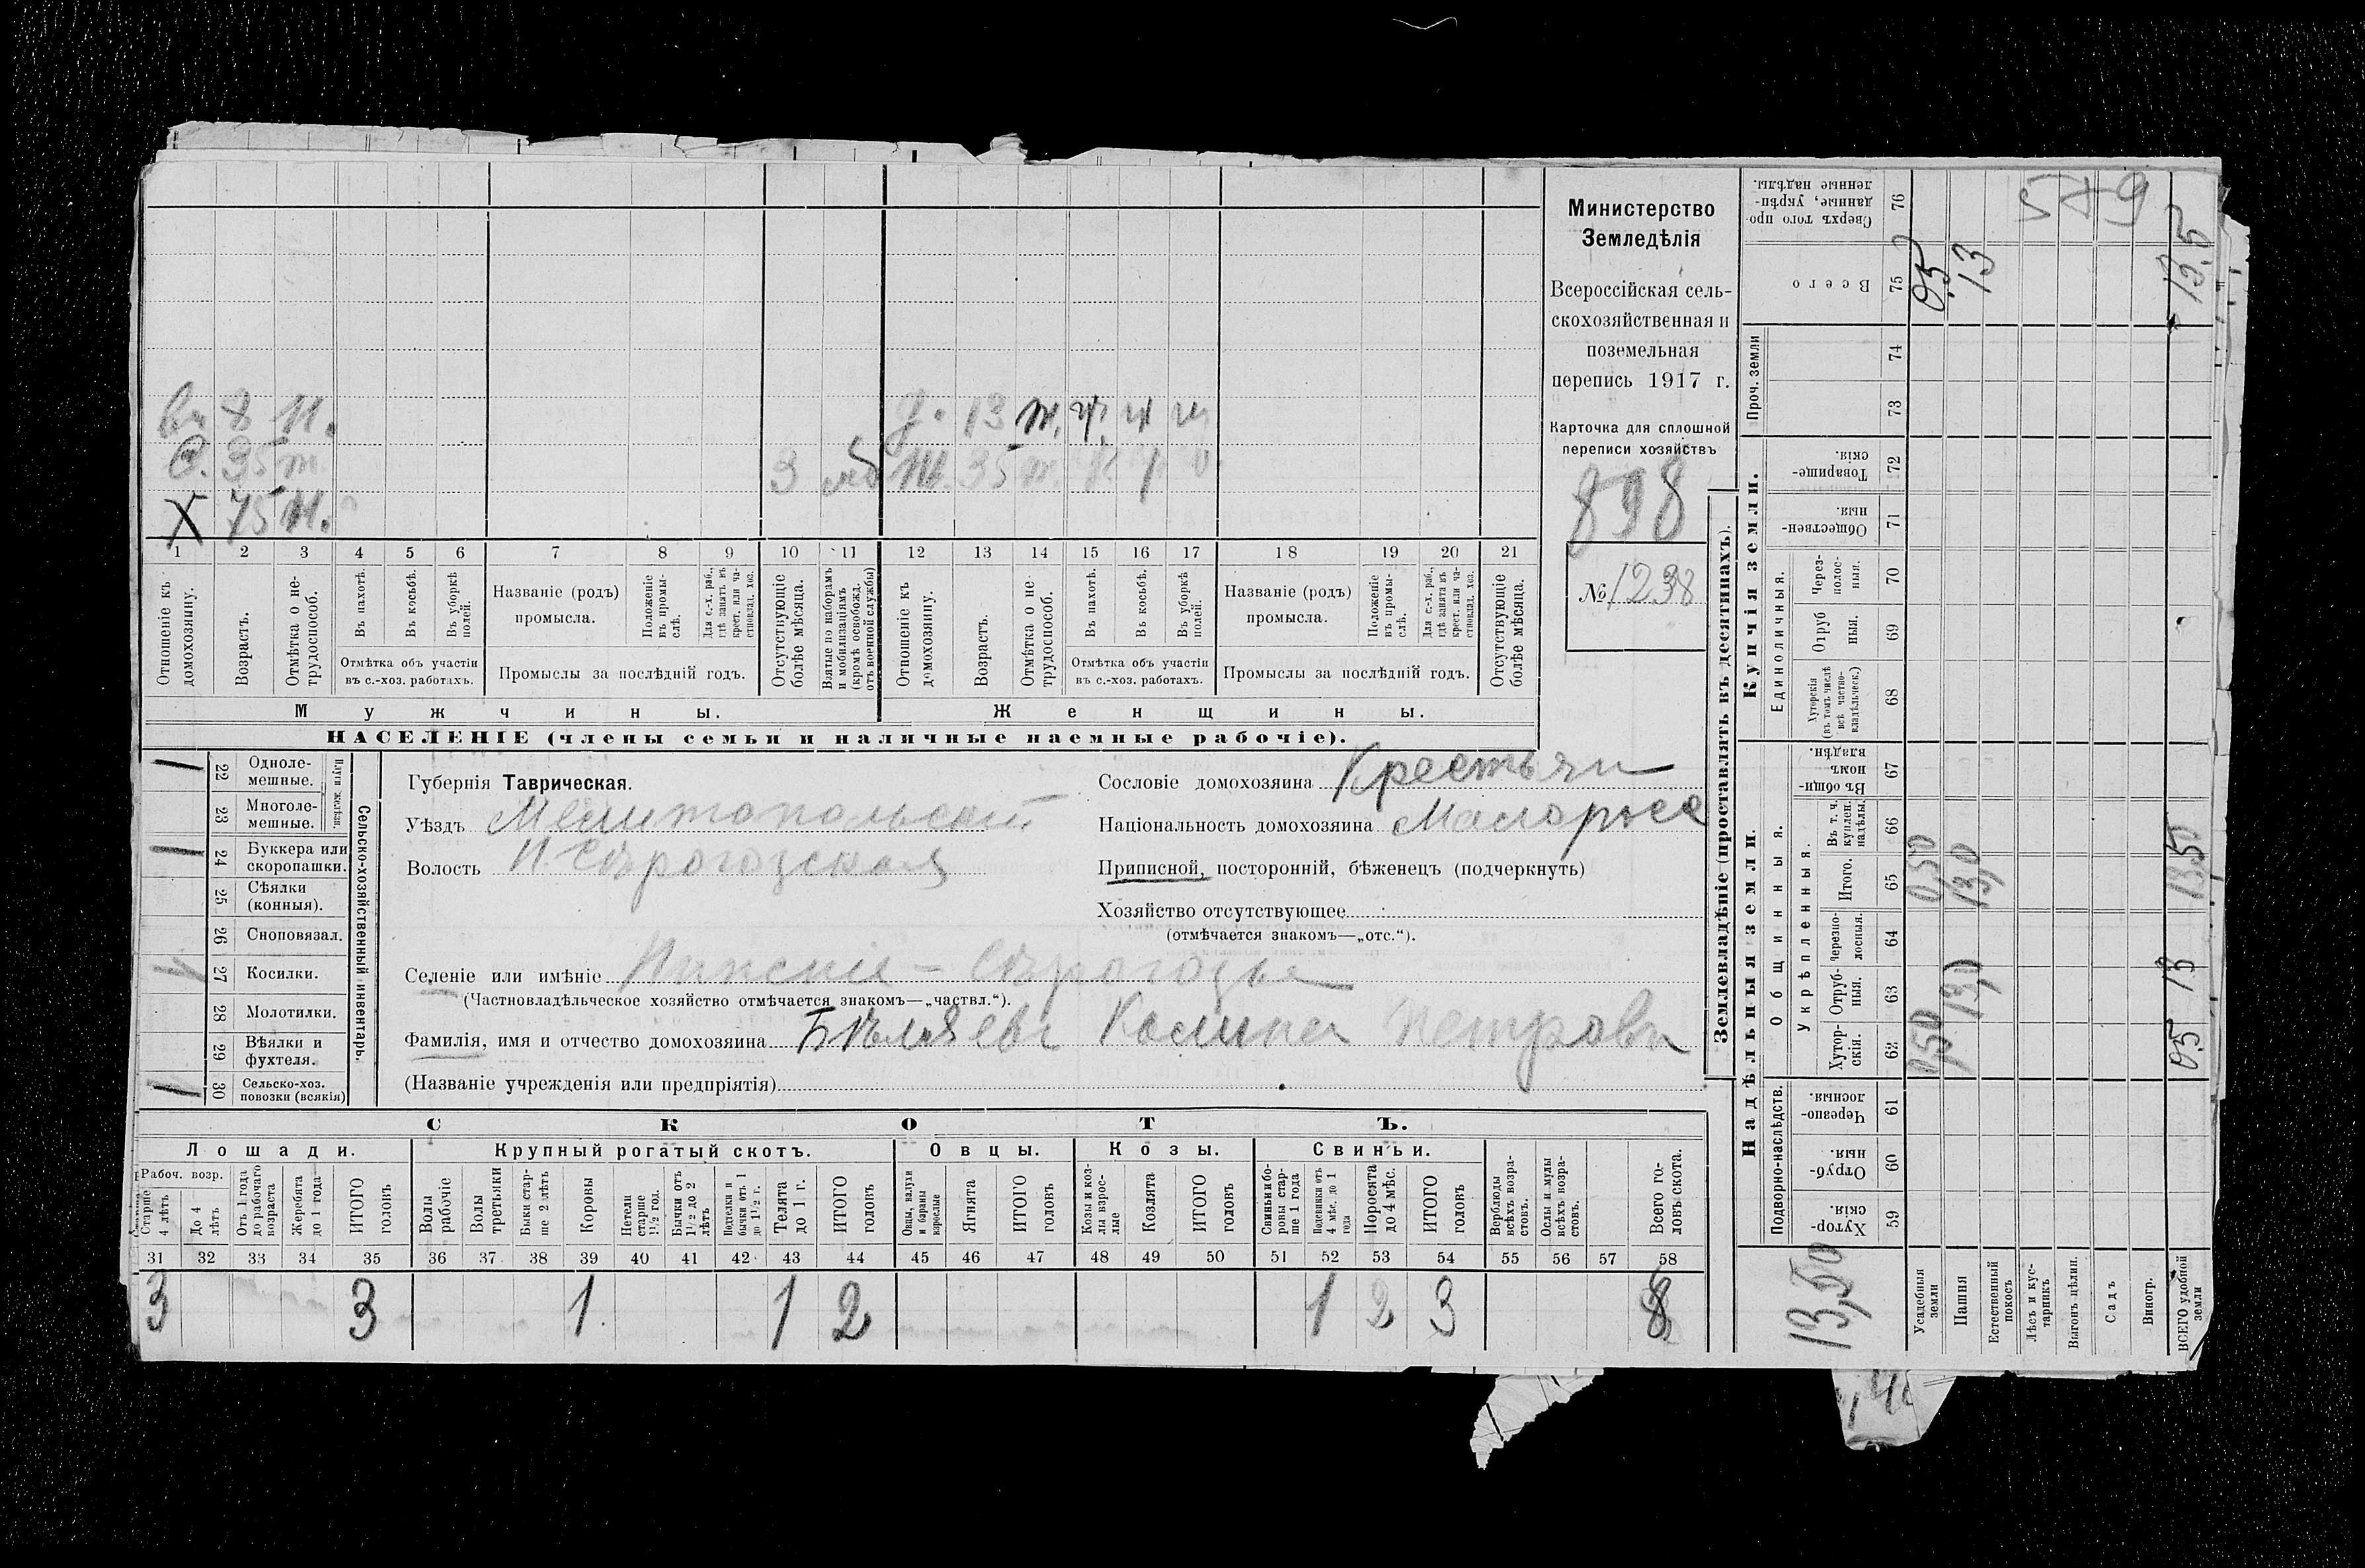 вн 8 н.
С. 35 т.
Х 75 н.
3 моб
д. 13 т. ч. ч ч
ж. 35 т. ч. ч ч
1 2 3 4 5 6 7 8 9 10 11 12 13 14 15 16 17 18 19 20 21
Отношеніе къ домохозяину.
Возрастъ.
Отмѣтка о не-
трудоспособ.
Въ пахотѣ.
Въ косьбѣ.
Въ уборкѣ
полей.
Отмѣтка объ участіи
въ с.-хоз. работахъ.
Названіе (родъ)
промысла.
Положеніе
въ промы-
слѣ.
Для с.-х. раб.,
гдѣ занятъ въ
крест. или ча-
стновлад. хоз.
Промыслы за послѣдній годъ.
Отсутствующіе
болѣе мѣсяца.
Взятые по наборамъ
и мобилизаціямъ
(кромѣ освобожд.
отъ военной службы)
Отношеніе къ
домохозяину.
Возрастъ.
Отмѣтка о не-
трудоспособ.
Въ пахотѣ.
Въ косьбѣ.
Въ уборкѣ
полей.
Отмѣтка объ участіи
въ с.-хоз. работахъ.
Названіе (родъ)
промысла.
Положеніе
въ промы-
слѣ.
Для с.-х. раб.,
гдѣ занята въ
крест. или ча-
стновлад. хоз.
Промыслы за послѣдній годъ.
Отсутствующіе
болѣе мѣсяца.
Мужчины.
Женщины.
НАСЕЛЕНІЕ (члены семьи и наличные наемные рабочіе).
Министерство
Земледѣлія
Всероссійская сель-
скохозяйственная и
поземельная
перепись 1917 г.
Карточка для сплошной
переписи хозяйствъ
898
№ 1238
Сельско-хозяйственный инвентарь.
Плуги желѣзн.
1 22 Одноле-
мешные.
23 Многоле-
мешные.
1 24 Буккера или
скоропашки.
25 Сѣялки
(конныя).
26 Сноповязал.
27 Косилки.
28 Молотилки.
29 Вѣялки и
фухтеля.
1 30 Сельско-хоз.
повозки (всякія)
Губернія Таврическая.
Уѣздъ Мелитопольскій
Волость Н. Сѣрогозская
Сословіе домохозяина Крестьян
Національность домохозяина Малоросс
Приписной, посторонній, бѣженецъ (подчеркнуть)
Хозяйство отсутствующее
(отмѣчается знакомъ—„отс.“).
Селеніе или имѣніе Нижніе-Сѣрогозы
(Частновладѣльческое хозяйство отмѣчается знакомъ—„частвл.“).
Фамилія, имя и отчество домохозяина Бѣляевъ Петровъ
(Названіе учрежденія или предпріятія)
СКОТЪ.
Лошади. Крупный рогатый скотъ. Овцы. Козы. Свиньи.
Рабоч. возр.
Старше
4 лѣтъ
До 4
лѣтъ
Отъ 1 года
до рабочаго
возраста
Жеребята
до 1 года
ИТОГО
головъ
Волы
рабочіе
Волы
третьяки
Быки стар-
ше 2 лѣтъ
Коровы
Нетели
старше
1½ год.
Бычки отъ
1½ до 2
лѣтъ
Подтелки и
бычки отъ 1
до 1½ г.
Телята
до 1 г.
ИТОГО
головъ
Овцы, валухи
и бараны
взрослые
Ягнята
ИТОГО
головъ
Козы и коз-
лы взрос-
лые
Козлята
ИТОГО
головъ
Свиньи и бо-
ровы стар-
ше 1 года
Подсвинки отъ
4 мѣс. до 1
года
Поросята
до 4 мѣс.
ИТОГО
головъ
Верблюды
всѣхъ возра-
стовъ.
Ослы и мулы
всѣхъ возра-
стовъ.
Всего го-
ловъ скота.
31 32 33 34 35 36 37 38 39 40 41 42 43 44 45 46 47 48 49 50 51 52 53 54 55 56 57 58
3 3 1 1 2 1 2 3 8
Землевладѣніе (проставлять въ десятинахъ).
Надѣльныя земли.
Купчія земли.
Проч. земли
Подворно-наслѣдств.
Общинныя.
Укрѣпленныя.
Единоличныя.
Хутор-
скія.
59
Отруб-
ныя.
60
Черезпо-
лосныя.
61
Хутор-
скія.
62
Отруб-
ныя.
63
Черезпо-
лосныя.
64
Итого.
65
Въ т. ч.
куплен.
надѣлы.
66
Въ общин-
номъ
владѣн.
67
Хуторскія
(въ томъ числѣ
всѣ частно-
владѣльческ.)
68
Отруб
ныя.
69
Через-
полос-
ныя.
70
Обществен-
ныя.
71
Товарище-
скія.
72
73
74
Всего
75
Сверхъ того про-
данные, укрѣп-
ленные надѣлы.
76
13,50
Усадебныя
земли
0,50 0,50 0,5
Пашня
13,0 13,0 13
Естественный
покосъ
Лѣсъ и кус-
тарникъ
Выгонъ цѣлин.
Садъ
Виногр.
ВСЕГО удобной
земли
0,5 13 13,50 13,5
589